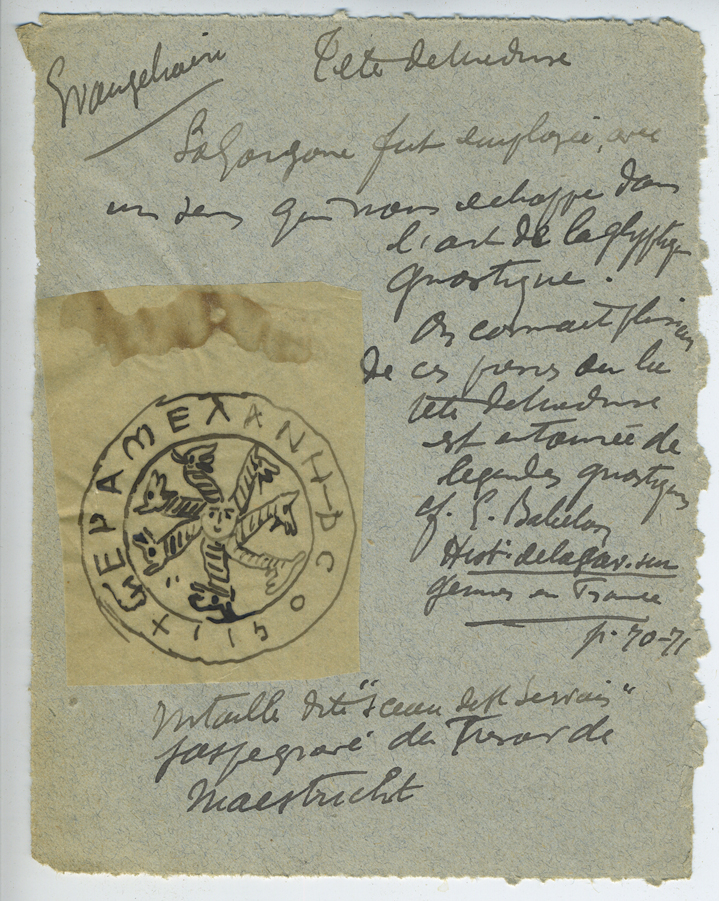 Tête de Meduse
La Gorgone fut employée, avec
un sens qui nous echappe dans
l'art de la glyptique
gnostique.
On connait plusieurs
de ces pierres ou la
tête de Meduse
est entourée de
legendes gnostiques
cf. E. Babelon
Hist. de la grav. sur
gemmes en France
p. 70-71
dite "Sceau de St Servais"
jaspe gravé du Tresor de
Maestricht